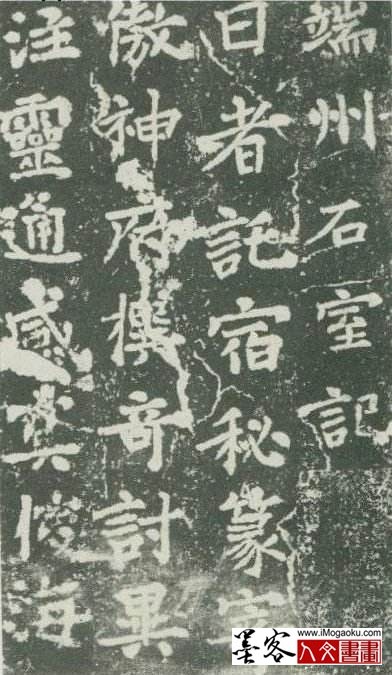 端州石室記
日者託宿秘篆
傲神府撰奇討異
注靈通感冥海
墨客
www.iMogaoku.com
人文書畫